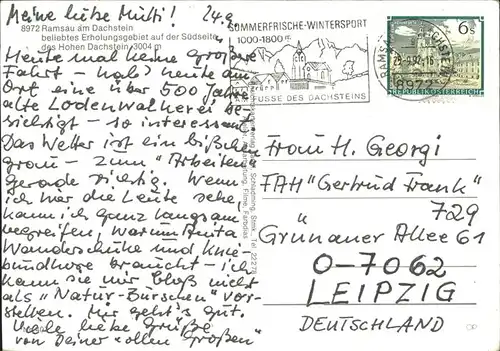 Meine liebe Mutti! 24.9
8972 Ramsau am Dachstein
beliebtes Erholungsgebiet auf der Südseite
des Hohen Dachstein, 3004 m
Heute mal keine größere
Fahrt - hab' heute am
Ort eine über 500 Jahre
alte Lodenwalkerei be-
sichtigt - so interessant
Das Wetter ist ein bißchen
grau - zum "Arbeiten"
gerade richtig. Wenn
ich hier die Leute sehe,
kann ich ganz langsam
begreifen, warum Anita
Wanderschuhe und Knie-
bundhose braucht - ich
kann sie mir bloß nicht
als "Natur-Burschen" vor-
stellen. Mir geht's gut.
Viele liebe Grüße
von Deiner "ollen Großen"
SOMMERFRISCHE-WINTERSPORT
1000-1800 m
AM FUSSE DES DACHSTEINS
RAMSAU AM DACHSTEIN
24.-9.92-16
8972
6s
REPUBLIK ÖSTERREICH
Frau H. Georgi
FAH "Gertrud Frank"
729
Grünauer Allee 61
O-7062
LEIPZIG
DEUTSCHLAND